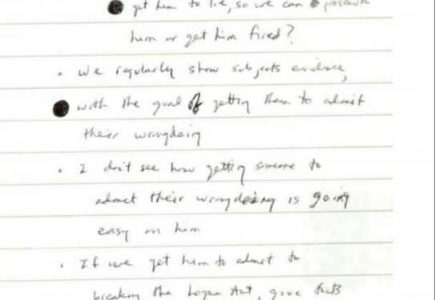 get him to lie, so we can prosecute
him or get him fired?
· we regularly show subjects evidence,
with the goal of getting them to admit
their wrongdoing
· I don't see how getting someone to
admit their wrongdoing is going
easy on him
· If we get him to admit to
breaking the Logan Act, give facts